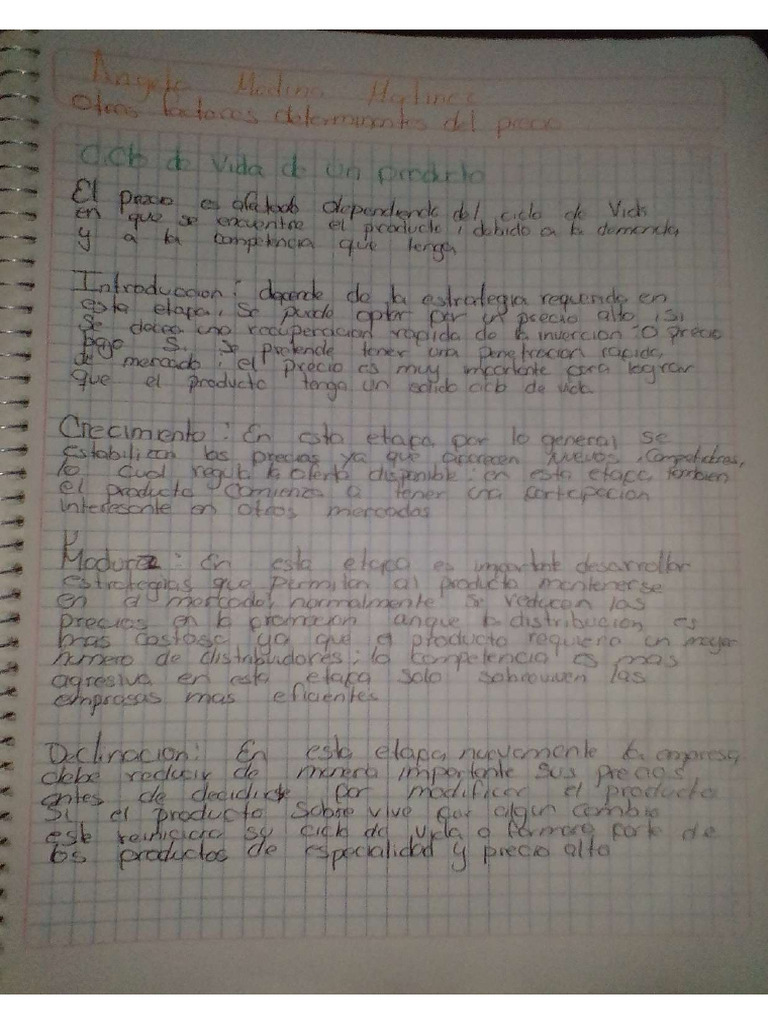 Angela Medina Martinez
Otros factores determinantes del precio
Ciclo de Vida de un producto
El precio es afectado dependiendo del ciclo de Vida
en que se encuentre el producto, debido a la demanda,
y a la competencia que tenga
Introduccion: depende de la estrategia requerida en
esta etapa, se puede optar por un precio alto, si
se desea una recuperacion rapida de la invercion o precio
bajo si se pretende tener una penetracion rapida
de mercado; el precio es muy importante para lograr
que el producto tenga un solido ciclo de vida.
Crecimiento: En esta etapa por lo general se
estabilizan los precios ya que aparecen nuevos competidores,
lo cual regula la oferta disponible; en esta etapa tambien
el producto comienza a tener una participacion
interesante en otros mercados
Madurez: En esta etapa es important desarrollar
estrategias que permitan al producto mantenerse
en el mercado, normalmente se reducen los
precios en la promocion anque la distribucion es
mas costosa ya que el producto requiere un mayor
numero de distribuidores; la competencia es mas
agresiva en esta etapa solo sobreviven las
empresas mas eficientes
Declinacion: En esta etapa nuevamente la empresa,
debe reducir de manera importante sus precios,
antes de decidirse por modificar el producto
Si el producto sobre vive por algun cambio
este reiniciara su ciclo de vida o formara parte de
los productos de especialidad y precio alto